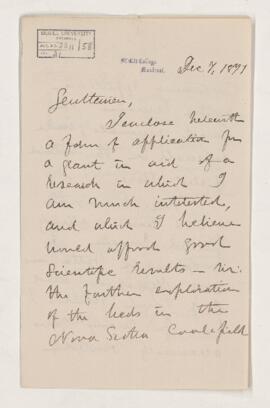 McGILL UNIVERSITY
ARCHIVES
ACC. NO.
McGill College
Montreal.
Dec 7, 1891
Gentlemen,
I enclose herewith
a form of application for
a grant in aid of a
research in which I
am much interested,
and which I believe
would afford good
Scientific results – viz:
the further exploration
of the beds in the
Nova Scotia Coalfield